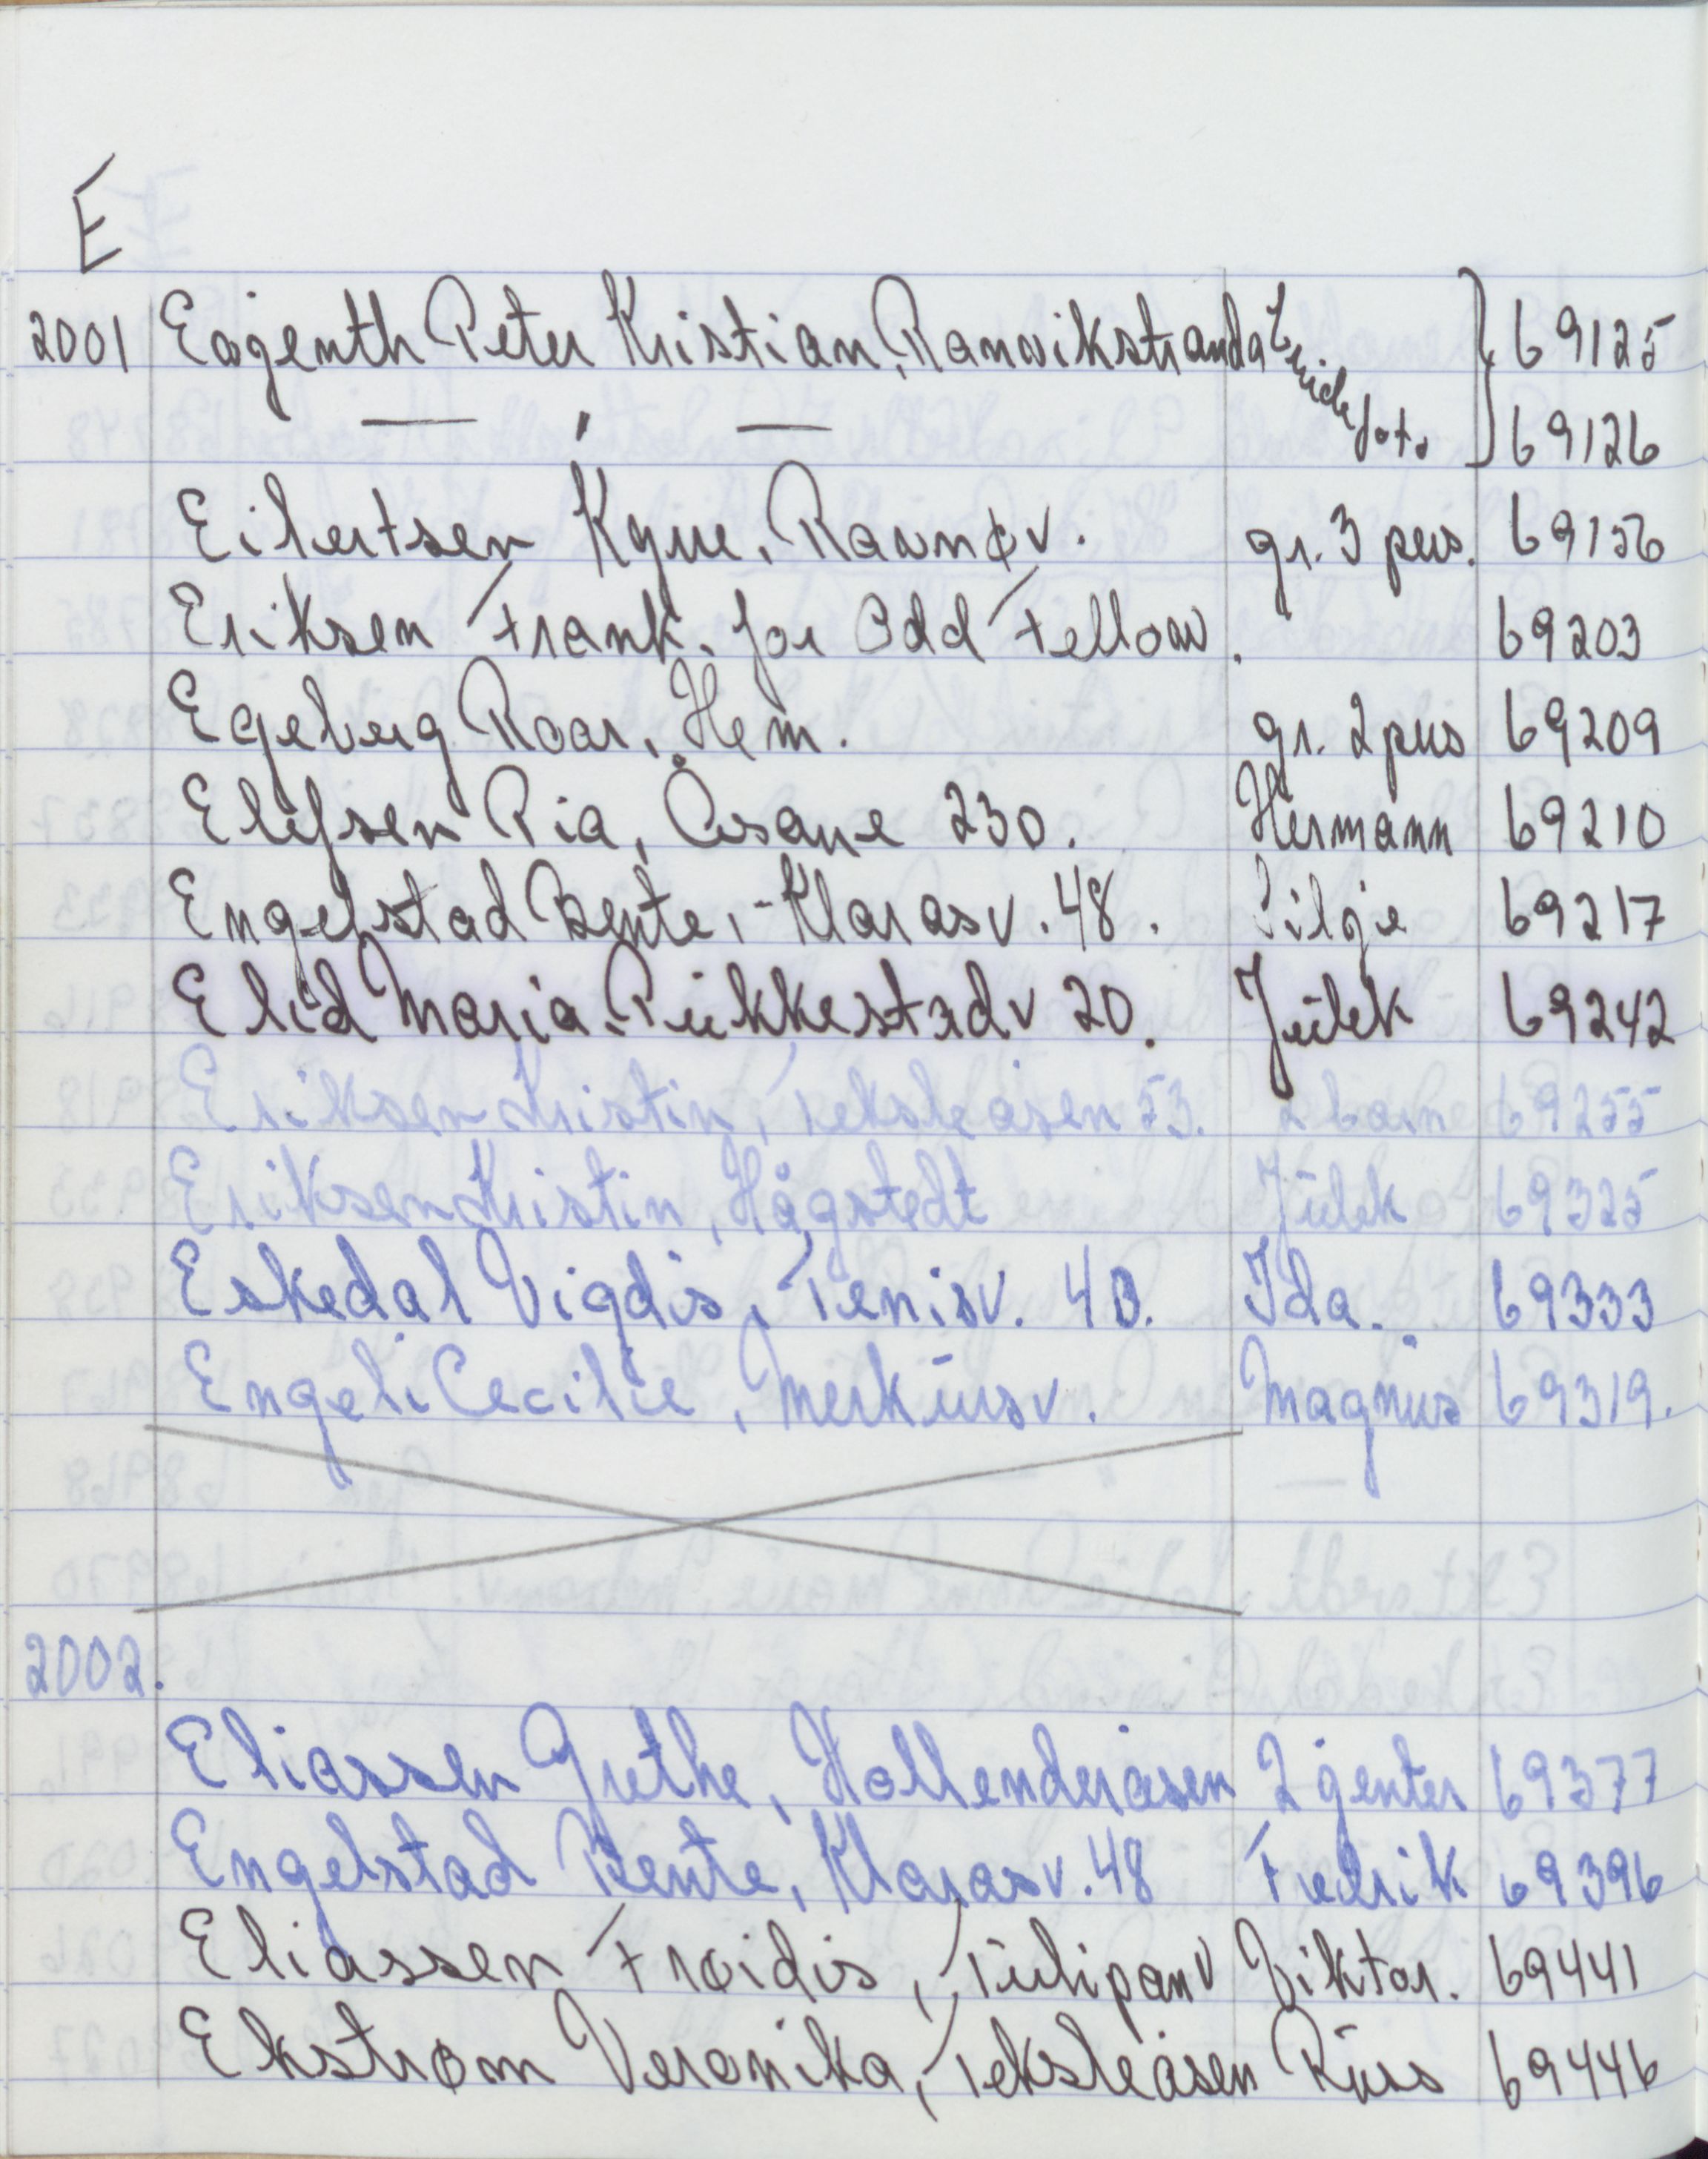 E
2001 Eagenth Peter Kristian, Ranvikstranda 69125
— " — foto 69126
Eilertsen Kyrre, Ravnøv. gr. 3 pers. 69156
Eriksen Frank, for Odd Fellow. 69203
Egeberg Roar, Hem. gr. 2 pers 69209
Elefsen Pia, Åsane 230. Hermann 69210
Engelstad Bente, Klarasv. 48. Silje 69217
Elid Maria, Pukkestadv 20. Julek 69242
Eriksen Kristin, Veksleåsen 53. 2 barn 69255
Eriksen Kristin, Hågstedt Julek 69325
Eskedal Vigdis, Tenisv. 4B. Ida. 69333
Engeli Cecilie, Merkursv. Magnus 69319.
2002.
Eliassen Grethe, Hollenderåsen 2 jenter 69377
Engelstad Bente, Klarasv. 48 Fredrik 69396
Eliassen Frøidis, Tulipanv Viktor. 69441
Ekstrøm Veronika, Veksleåsen Russ 69446